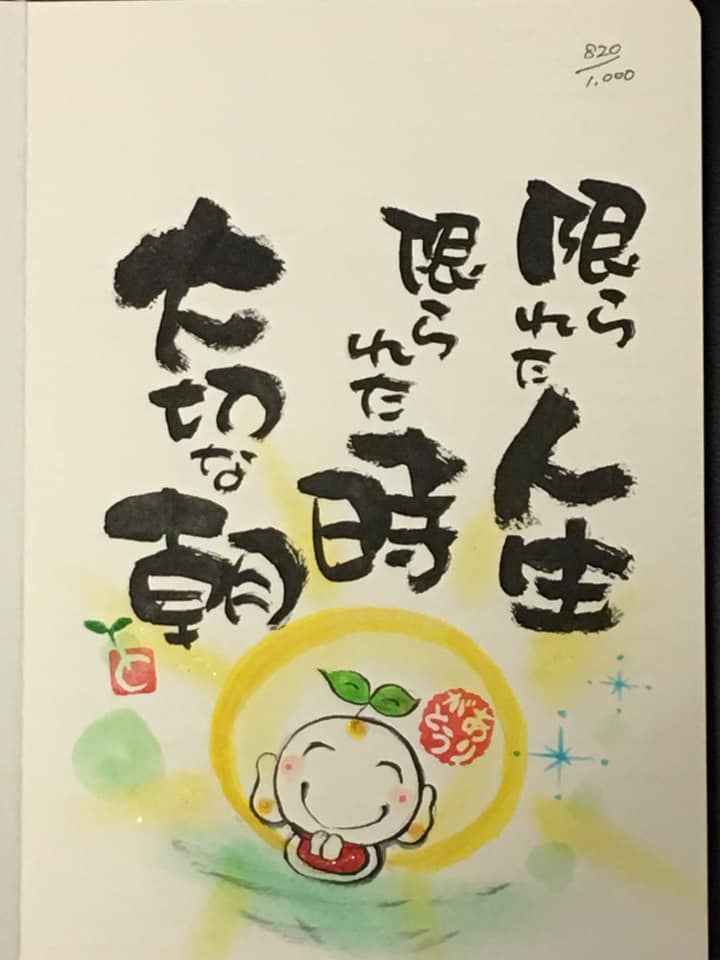 820/1,000
限られた人生
限られた時
大切な朝
と
ありがとう